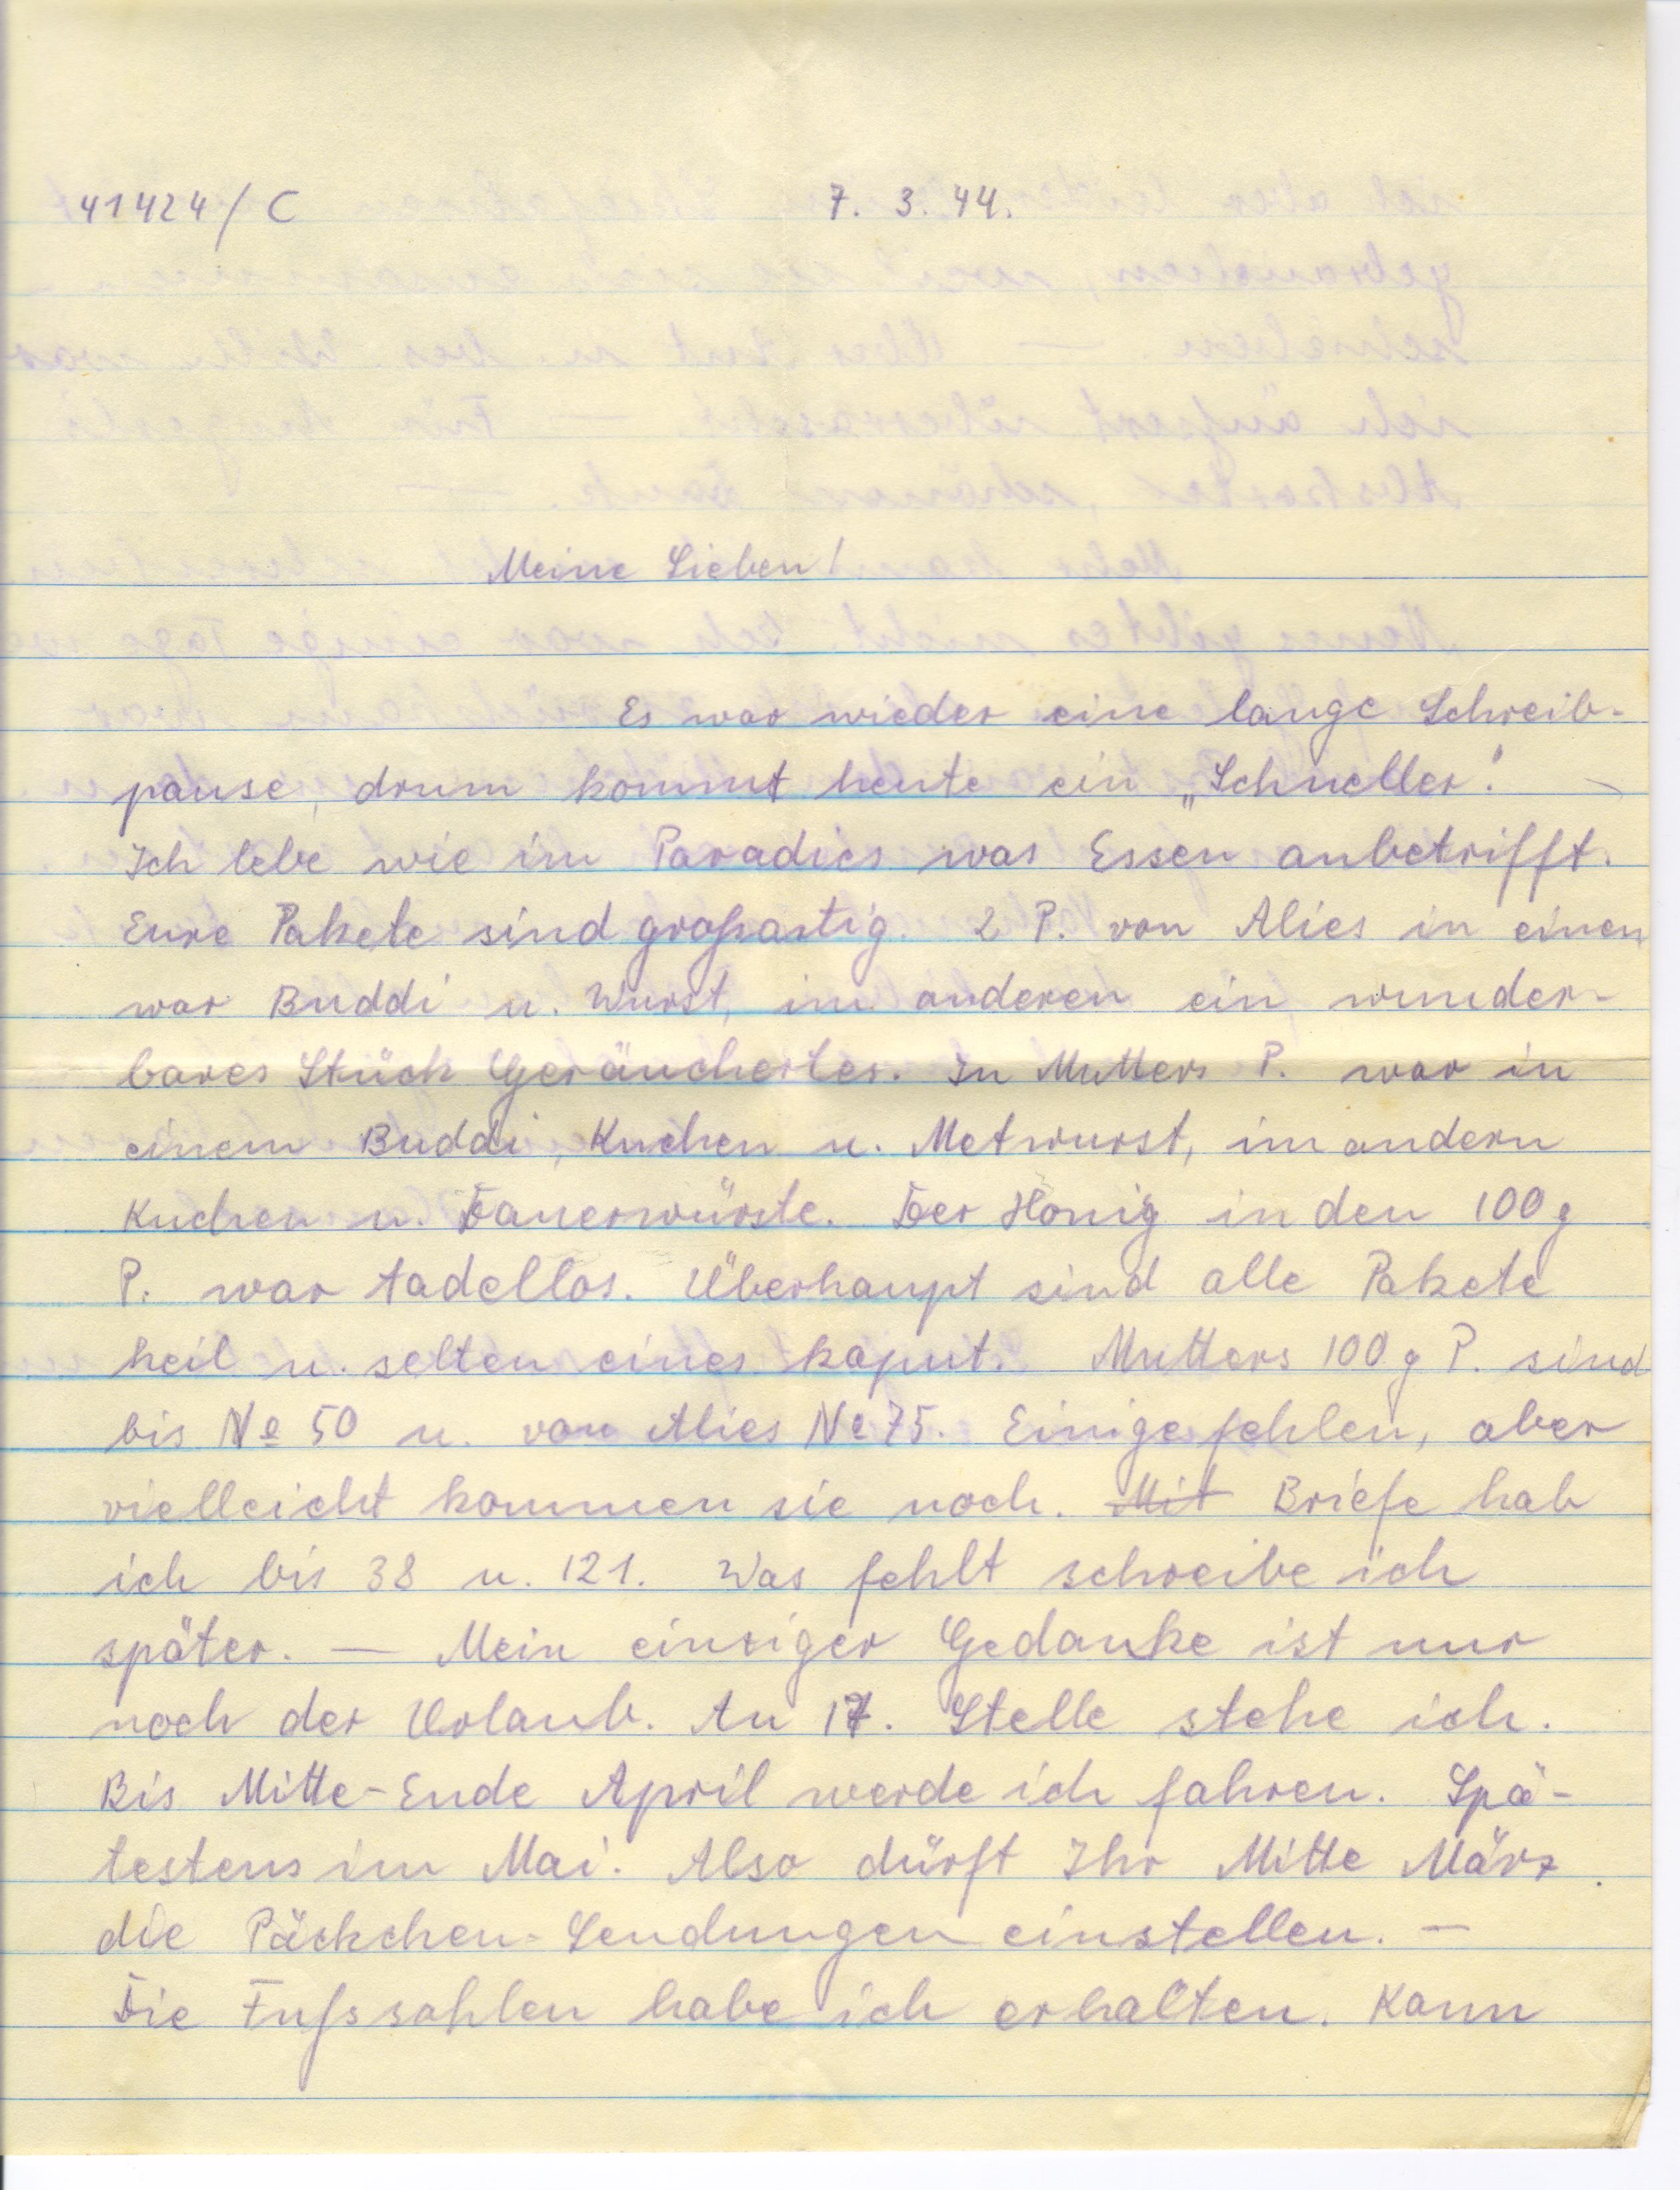 41424/C 7. 3. 44.
Meine Lieben!
Es war wieder eine lange Schreib-
pause, drum kommt heute ein „Schneller".
Ich lebe wie im Paradies was Essen anbetrifft.
Eure Pakete sind großartig. 2 P. von Alies in einen
war Buddi u. Wurst, im anderen ein wunder-
bares Stück Geräuchertes. In Mutters P. war in
einem Buddi, Kuchen u. Metwurst, im andern
Kuchen u. Dauerwürste. Der Honig in den 100 g
P. war tadellos. Überhaupt sind alle Pakete
heil u. selten eines kaput. Mutters 100 g P. sind
bis № 50 u. von Alies № 75. Einige fehlen, aber
vielleicht kommen sie noch. Mit Briefe hab
ich bis 38 u. 121. Was fehlt schreibe ich
später. — Mein einziger Gedanke ist nur
noch der Urlaub. An 17. Stelle stehe ich.
Bis Mitte-Ende April werde ich fahren. Spä-
testens im Mai. Also dürft Ihr Mitte März
die Päckchen-Sendungen einstellen. —
Die Fußsohlen habe ich erhalten. Kann